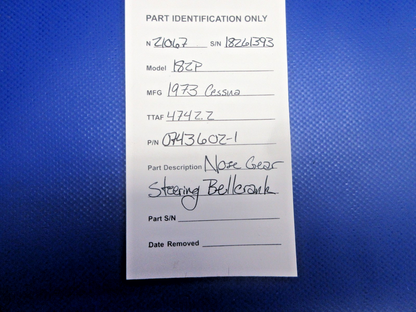 PART IDENTIFICATION ONLY
N 21067 S/N 18261393
Model 182P
MFG 1973 Cessna
TTAF 4742.2
P/N 0743602-1
Part Description Nose Gear
Steering Bellcrank
Part S/N
Date Removed